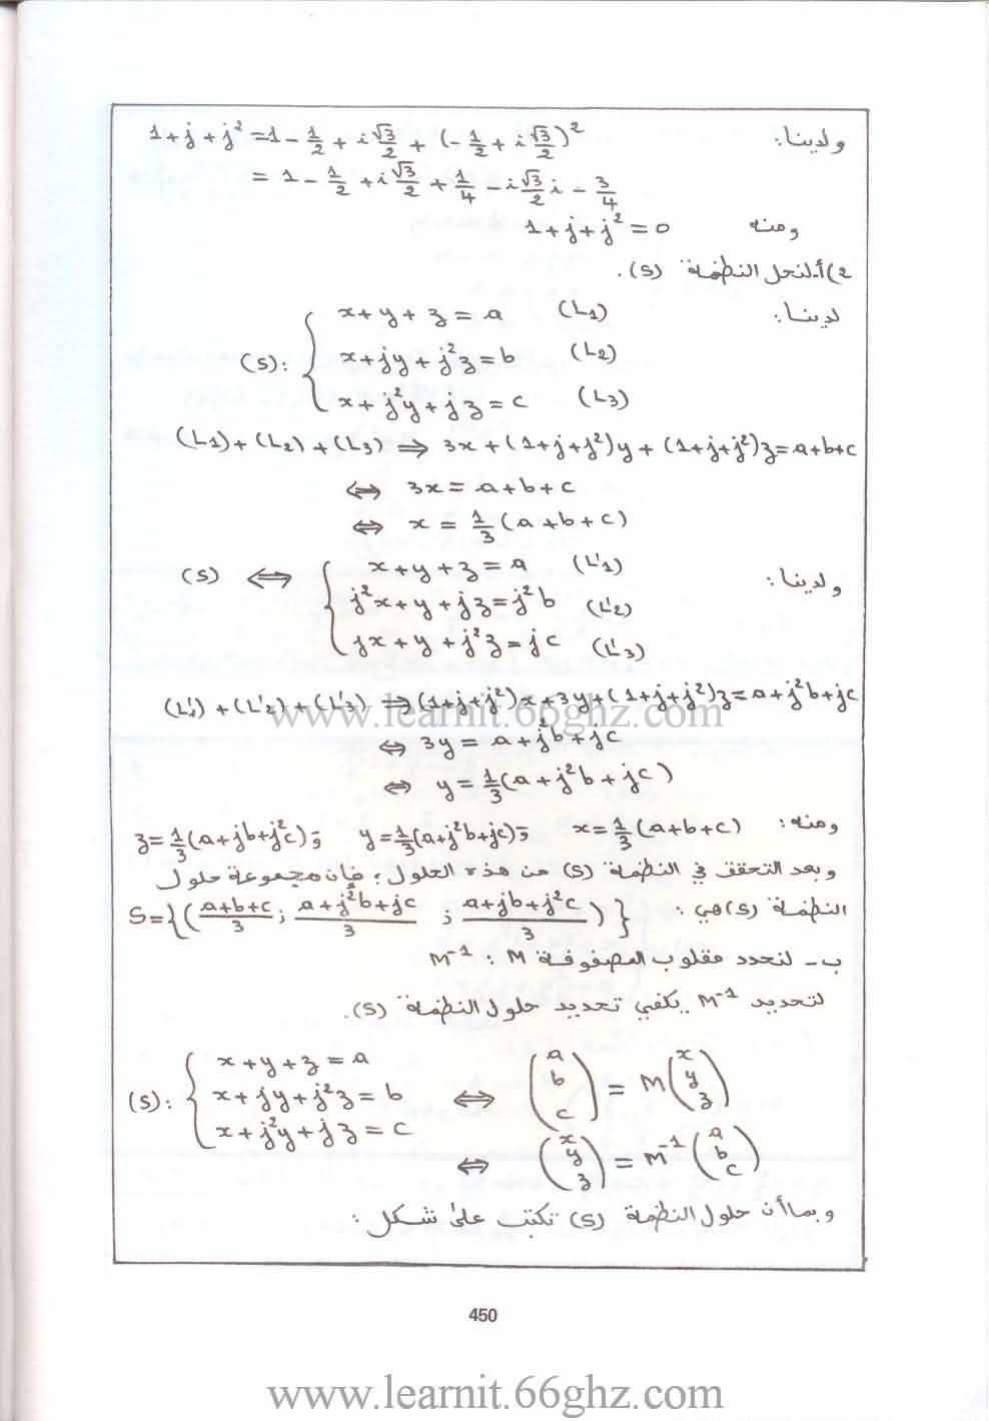 ولدينا: 1+j+j² = 1 - 1/2 + i√3/2 + (-1/2 + i√3/2)²
= 1 - 1/2 + i√3/2 + 1/4 - i√3/2 i - 3/4
ومنه 1+j+j² = 0
2) أ. لنحل النظمة (S).
لدينا:
(S): { x+y+z = a (L1)
x+jy+j²z = b (L2)
x+j²y+jz = c (L3)
(L1)+(L2)+(L3) ⇒ 3x+(1+j+j²)y+(1+j+j²)z = a+b+c
⇔ 3x = a+b+c
⇔ x = 1/3 (a+b+c)
ولدينا: (S) ⇔ { x+y+z = a (L'1)
j²x+y+jz = j²b (L'2)
jx+y+j²z = jc (L'3)
(L'1)+(L'2)+(L'3) ⇒ (1+j+j²)x+3y+(1+j+j²)z = a+j²b+jc
www.learnit.66ghz.com
⇔ 3y = a+j²b+jc
⇔ y = 1/3 (a+j²b+jc)
ومنه: x = 1/3 (a+b+c) و y = 1/3 (a+j²b+jc) و z = 1/3 (a+jb+j²c)
وبعد التحقق في النظمة (S) من هذه الحلول؛ فإن مجموعة حلول
النظمة (S) هي: S = {( (a+b+c)/3 ; (a+j²b+jc)/3 ; (a+jb+j²c)/3 )}
ب - لنحدد مقلوب المصفوفة M : M⁻¹
لتحديد M⁻¹ يكفي تحديد حلول النظمة (S).
(S): { x+y+z = a
x+jy+j²z = b
x+j²y+jz = c
⇔ (a b c) = M (x y z)
⇔ (x y z) = M⁻¹ (a b c)
وبما أن حلول النظمة (S) تكتب على شكل:
450
www.learnit.66ghz.com